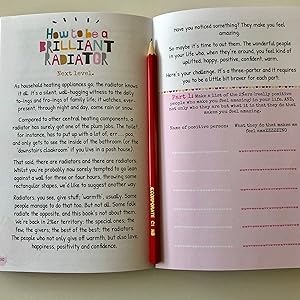 How to be a
BRILLIANT
RADIATOR
Next level.
As household heating appliances go, the radiator knows
it all. It's a silent, wall-hugging witness to the daily
to-ings and fro-ings of family life; it watches, ever-
present, through night and day, come rain or snow.
Compared to other central heating components, a
radiator has surely got one of the plum jobs. The toilet,
for instance, has to put up with an entire lot of ... err ... poo,
and only gets to see the inside of the bathroom (or the
downstairs cloakroom if you live in a posh house).
That said, there are radiators and there are radiators.
Whilst you're probably now sorely tempted to go lean
against a wall for three or four hours, throwing some
rectangular shapes, we'd like to suggest another way.
Radiators, you see, give stuff; warmth, usually. Some
people manage to do that too. But not all. Some folk
radiate the opposite, and this book's not about them.
We're back in 2%er territory; the special ones; the
few; the givers; the best of the best; the radiators.
The people who not only give off warmth, but also love,
happiness, positivity and confidence.
Have you noticed something? They make you feel
amazing.
So maybe it's time to out them. The wonderful people
in your life who, when they're around, you feel kind of
uplifted, happy, positive, confident, warm.
Here's your challenge. It's a three-parter and it requires
you to be a little bit braver for each part.
Part 1: Make a list of the
positive people who make you feel amazing in your life. AND,
not only who they are, but what is it that they do that
makes you feel amazing.
Name of positive person:
What they do that makes me
feel amAZEBALLING
ECOSPONTE C1 HB